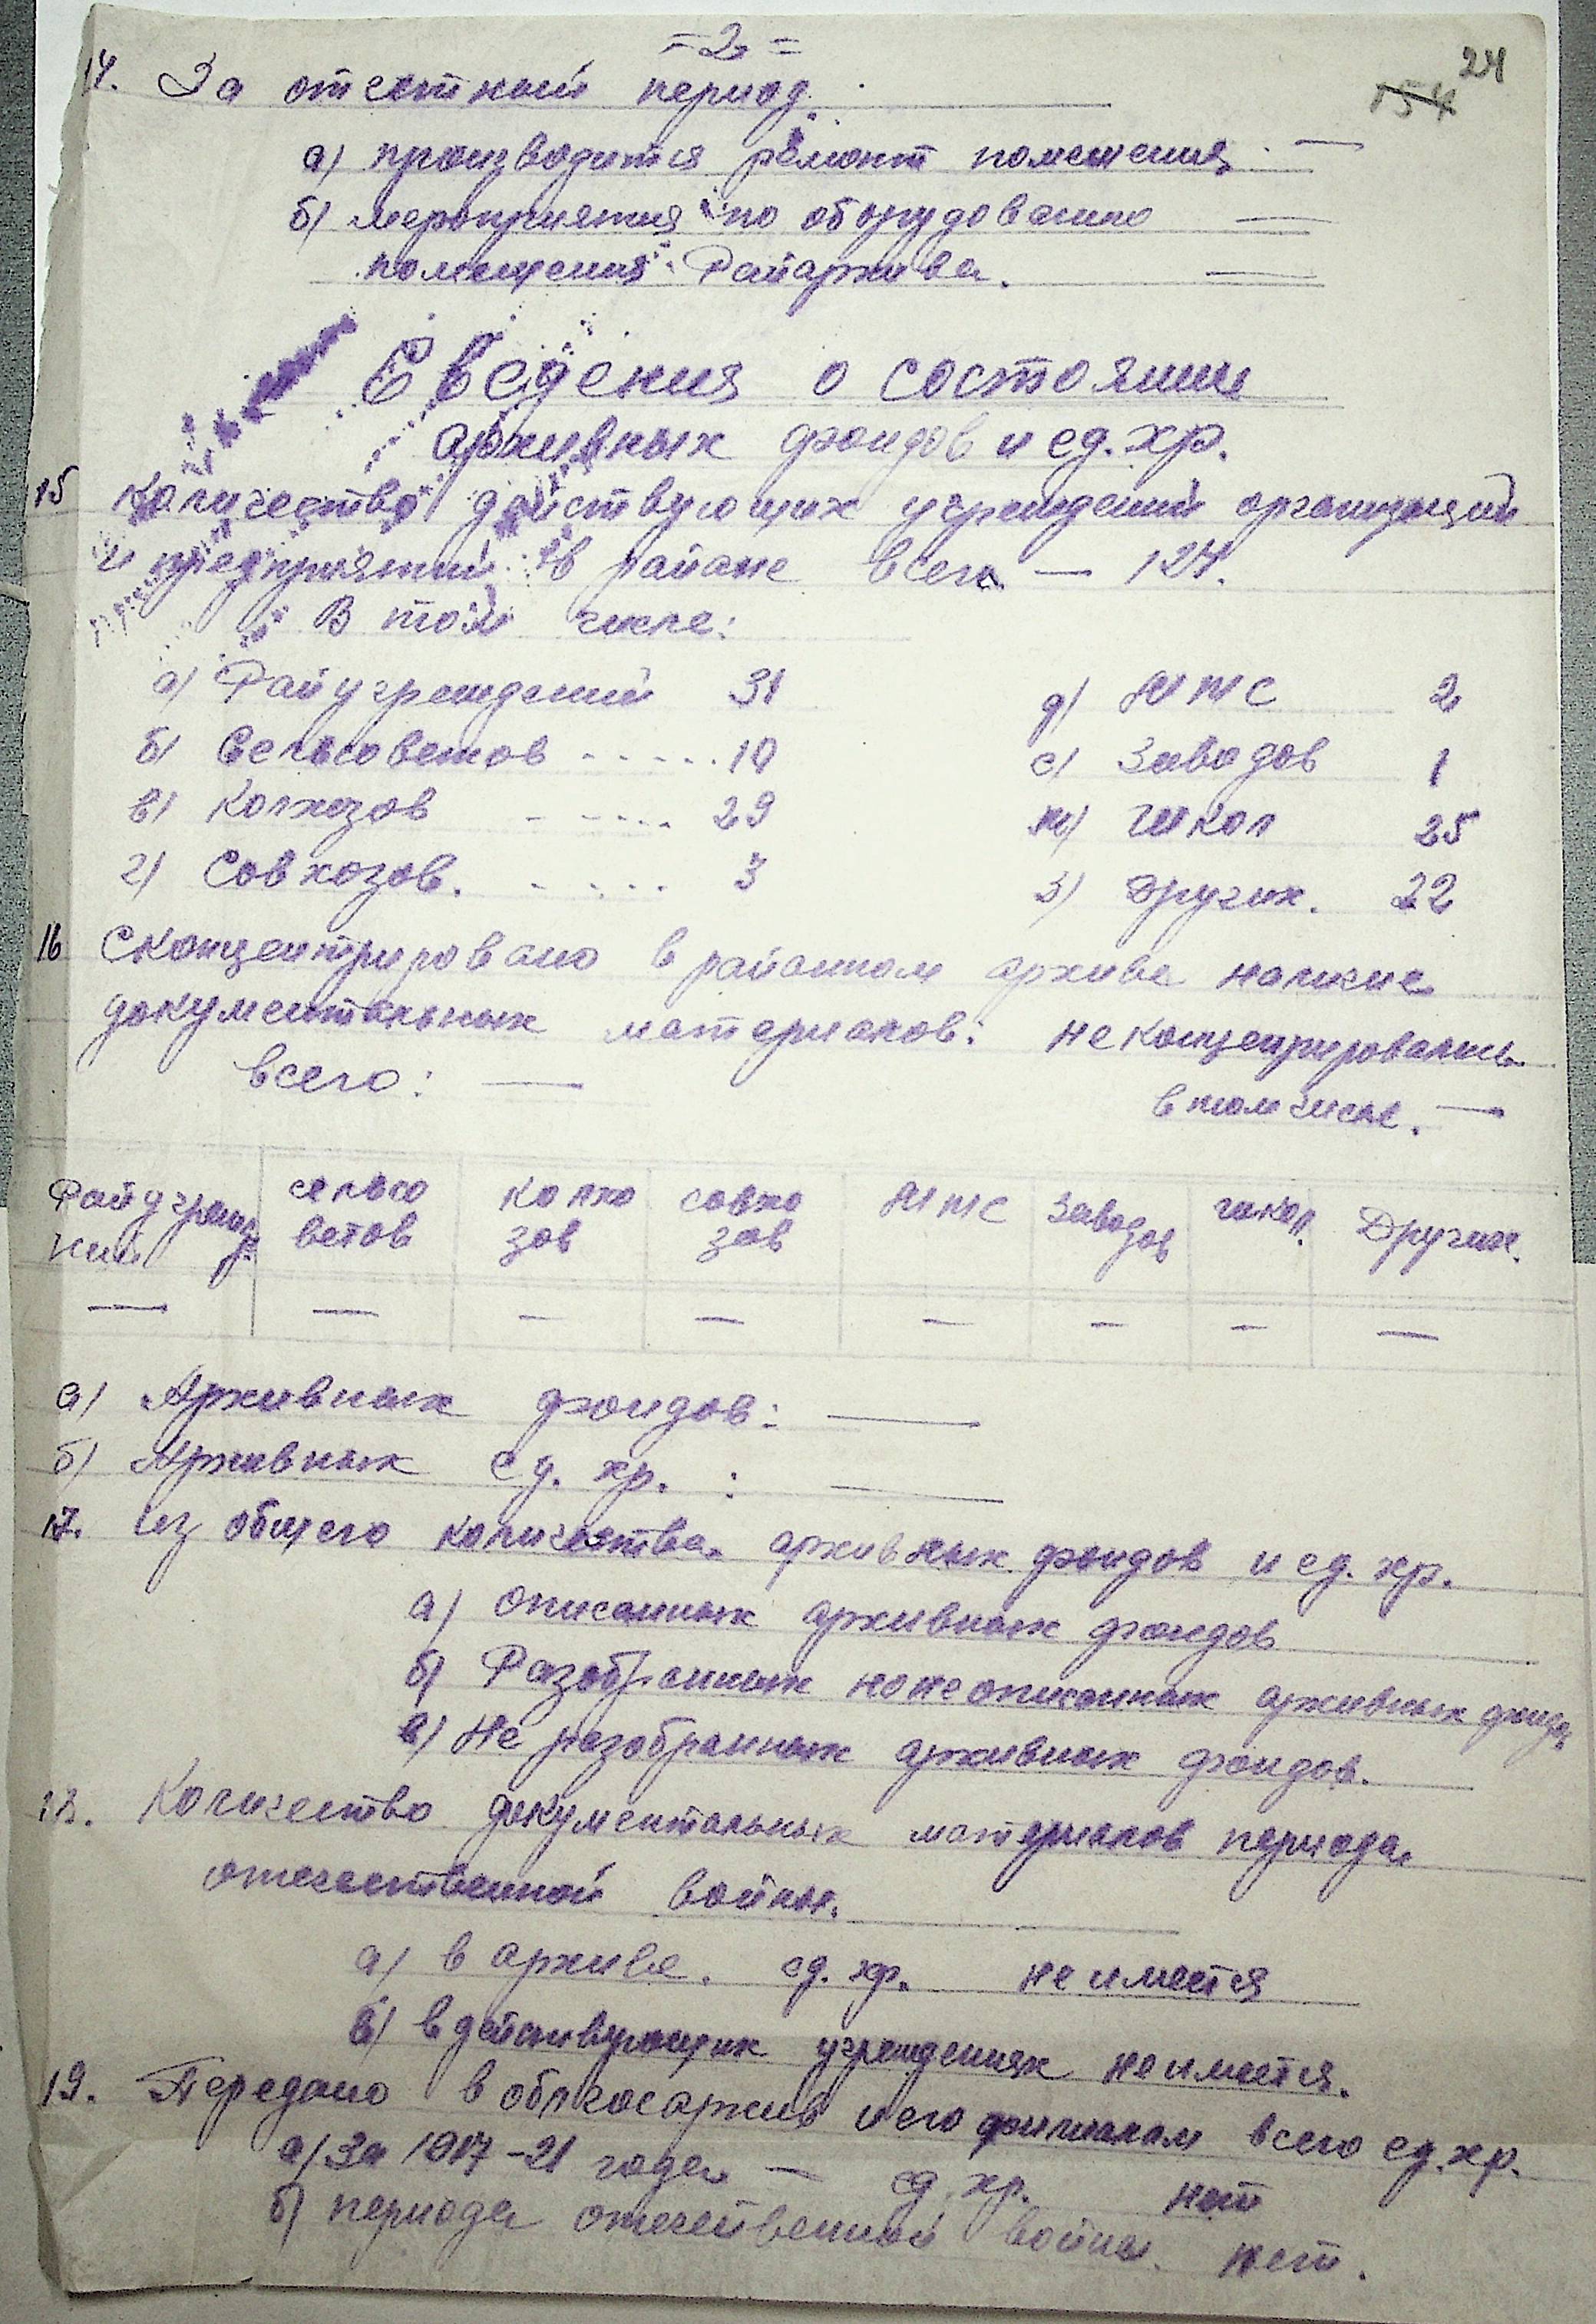 =2=
24
154
14. За отчетный период.
а) производится ремонт помещения —
б) мероприятия по оборудованию —
помещения Райархива. —
Сведения о состоянии
архивных фондов и ед. хр.
15 Количество действующих учреждений организаций
и предприятий в районе всего — 124.
В той числе:
а) Райучреждений 31
д) МТС 2
б) Сельсоветов ..... 10
е) Заводов 1
в) Колхозов ..... 29
ж) Школ 25
г) Совхозов. .... 3
з) Других. 22
16 Сконцентрировано в районном архиве наличие
документальных материалов: не концентрировались
всего: —
в том числе. —
Райучрежд
ний
сельсо
ветов
колхо
зов
совхо
зов
МТС
Заводов
школ.
Других.
— — — — — — — —
а) Архивных фондов: —
б) Архивных ед. хр. : —
17. Из общего количества архивных фондов и ед. хр.
а) описанных архивных фондов
б) Разобранных но не описанных архивных фондо
в) Не разобранных архивных фондов.
18. Количество документальных материалов периода
отечественной войны.
а) в архиве. ед. хр. не имеется
б) в действующих учреждениях не имеется.
19. Передано в облгосархив и его филиалам всего ед. хр.
а) За 1917-21 года — ед. хр. нет
б) периода отечественной войны. нет.